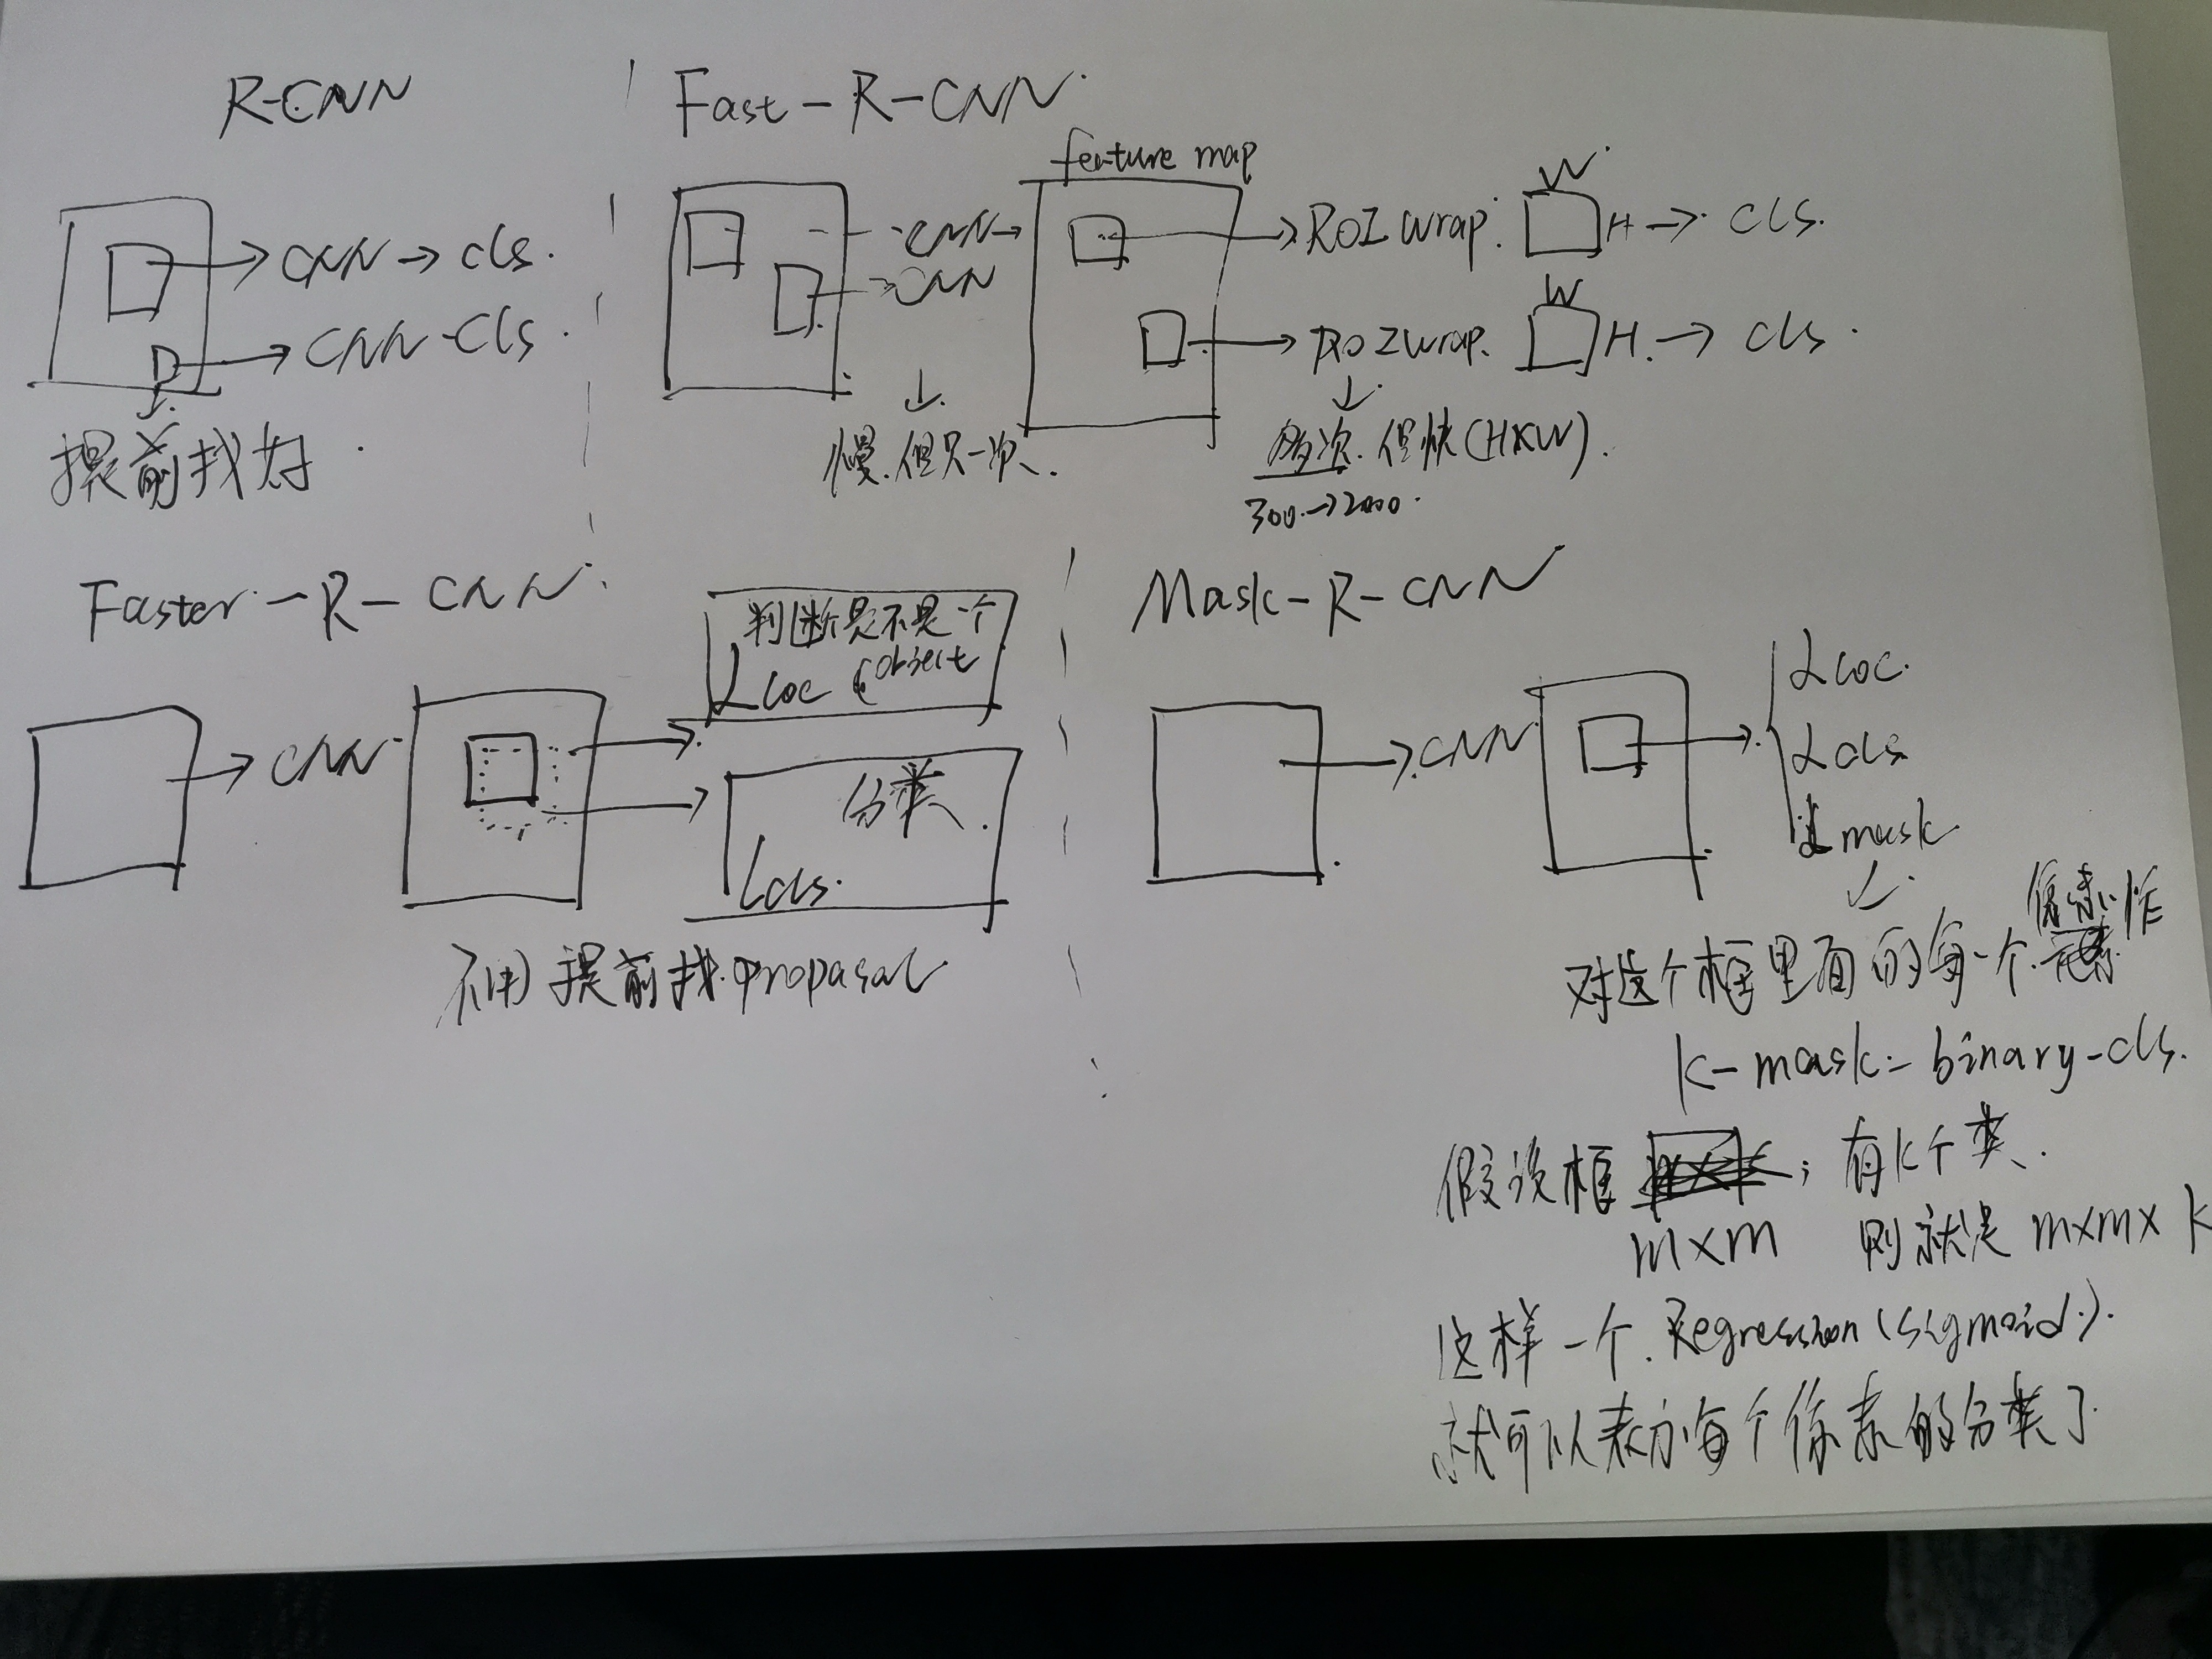 R-CNN
→ CNN → cls.
→ CNN-cls.
↓
提前找好.
Fast-R-CNN.
feature map
CNN →
→ CNN
↓
慢.但只一次.
→ ROI wrap: W H → cls.
→ ROI wrap. W H. → cls.
↓
多次.但快(HXW).
300.→2000.
Faster-R-CNN.
→ CNN.
判断是不是一个
Lloc object
分类.
Lcls.
不用提前找.propasal
Mask-R-CNN
→ CNN
Lloc.
Lcls
Lmask
↓
对这个框里面的每一个像素作
K-mask-binary-cls.
假设框 ; 有K个类.
mxm 则就是 mxmx K
这样一个.Regression(sigmoid.).
就可以表示每个像素的分类了